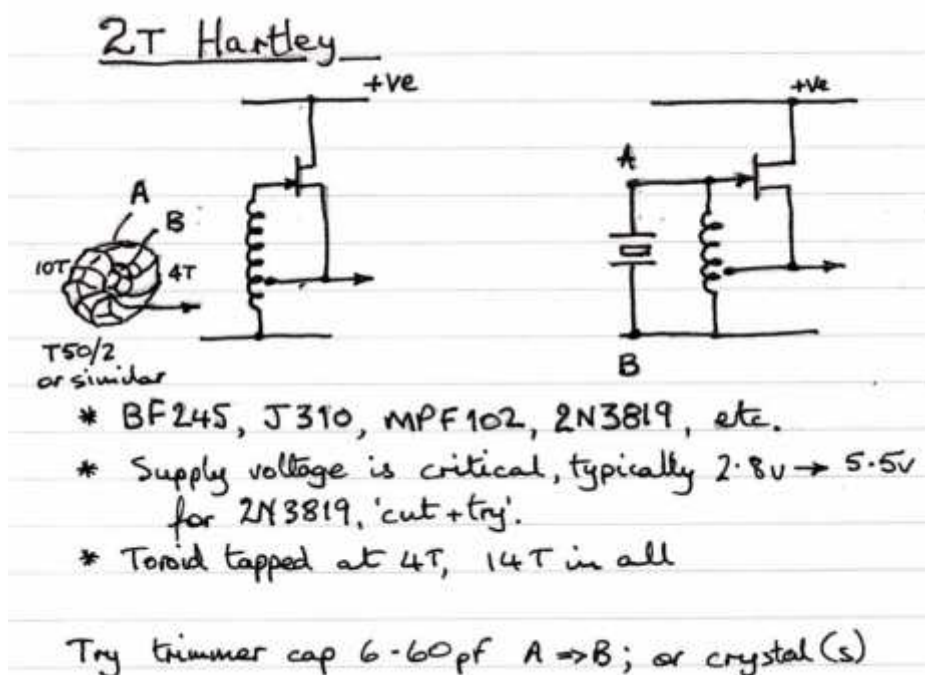 2T Hartley
+ve
+ve
A
A
B
10T
4T
B
T50/2
or similar
* BF245, J310, MPF102, 2N3819, etc.
* Supply voltage is critical, typically 2.8v → 5.5v
for 2N3819, 'cut + try'.
* Toroid tapped at 4T, 14T in all
Try trimmer cap 6-60pf A ⇒ B; or crystal(s)